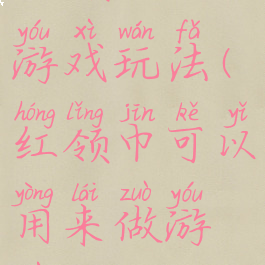 yóu xì wán fǎ
游戏玩法(
hóng lǐng jīn kě yǐ
红领巾可以
yòng lái zuò yóu
用来做游